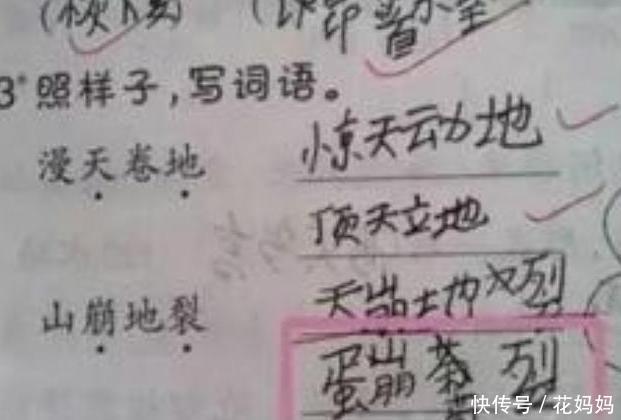 3 照样子，写词语。
漫天卷地
惊天动地
顶天立地
山崩地裂
天崩地裂
蛋崩茶列
快传号 / 花妈妈